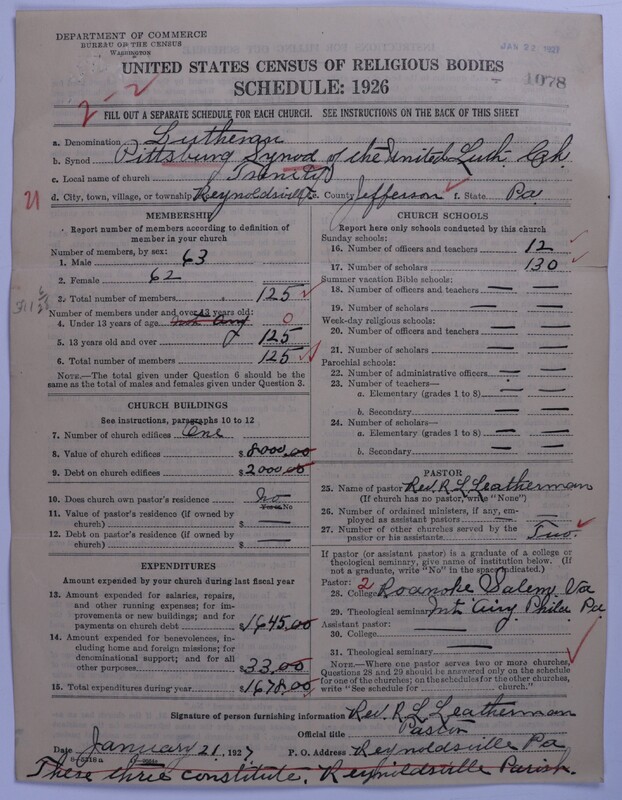 DEPARTMENT OF COMMERCE
BUREAU OF THE CENSUS
WASHINGTON
JAN 22 1927
UNITED STATES CENSUS OF RELIGIOUS BODIES
SCHEDULE: 1926
1078
2-2
FILL OUT A SEPARATE SCHEDULE FOR EACH CHURCH. SEE INSTRUCTIONS ON THE BACK OF THIS SHEET
a. Denomination Lutheran
b. Synod Pittsburg Synod of the United Luth. Ch.
c. Local name of church Trinity
21
d. City, town, village, or township Reynoldsville e. County Jefferson f. State Pa
MEMBERSHIP
Report number of members according to definition of
member in your church
Number of members, by sex:
1. Male 63
2. Female 62
3. Total number of members 125
Number of members under and over 13 years old:
4. Under 13 years of age Not any 0
5. 13 years old and over 125
6. Total number of members 125
NOTE.—The total given under Question 6 should be
the same as the total of males and females given under Question 3.
CHURCH BUILDINGS
See instructions, paragraphs 10 to 12
7. Number of church edifices One
8. Value of church edifices $8000.00
9. Debt on church edifices $2000.00
10. Does church own pastor's residence No
Yes or No
11. Value of pastor's residence (if owned by
church) $ —
12. Debt on pastor's residence (if owned by
church) $ —
EXPENDITURES
Amount expended by your church during last fiscal year
13. Amount expended for salaries, repairs,
and other running expenses; for im-
provements or new buildings; and for
payments on church debt $1645.00
14. Amount expended for benevolences, in-
cluding home and foreign missions; for
denominational support; and for all
other purposes $33.00
15. Total expenditures during year $1678.00
CHURCH SCHOOLS
Report here only schools conducted by this church
Sunday schools:
16. Number of officers and teachers 12
17. Number of scholars 130
Summer vacation Bible schools:
18. Number of officers and teachers — —
19. Number of scholars — —
Week-day religious schools:
20. Number of officers and teachers — —
21. Number of scholars — —
Parochial schools:
22. Number of administrative officers — —
23. Number of teachers—
a. Elementary (grades 1 to 8) — —
b. Secondary — —
24. Number of scholars—
a. Elementary (grades 1 to 8) — —
b. Secondary — —
PASTOR
25. Name of pastor Rev. R L Leatherman
(If church has no pastor, write "None")
26. Number of ordained ministers, if any, em-
ployed as assistant pastors — —
27. Number of other churches served by the
pastor or his assistants Two.
If pastor (or assistant pastor) is a graduate of a college or
theological seminary, give name of institution below. (If
not a graduate, write "No" in the space indicated.)
Pastor: 2
28. College Roanoke Salem, Va
29. Theological seminary Mt Airy Phila Pa
Assistant pastor:
30. College —
31. Theological seminary —
NOTE.—Where one pastor serves two or more churches,
Questions 28 and 29 should be answered only on the schedule
for one of the churches; on the schedules for the other churches,
write "See schedule for church."
Signature of person furnishing information Rev. R. L. Leatherman
Official title Pastor
Date January 21, 1927 P. O. Address Reynoldsville Pa
These three constitute, Reynoldsville Parish.